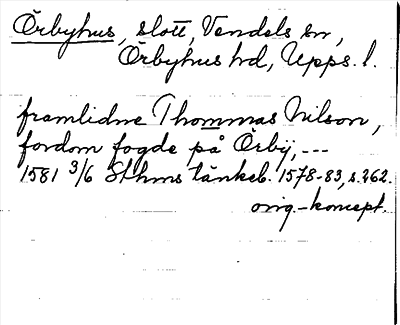 Örbyhus, slott, Vendels sn,
Örbyhus hd, Upps. l.
framlidne Thommas Nilson,
fordom fogde på Örbÿ, ---
1581 3/6 Sthms tänkeb. 1578-83, s. 262.
orig.-koncept.